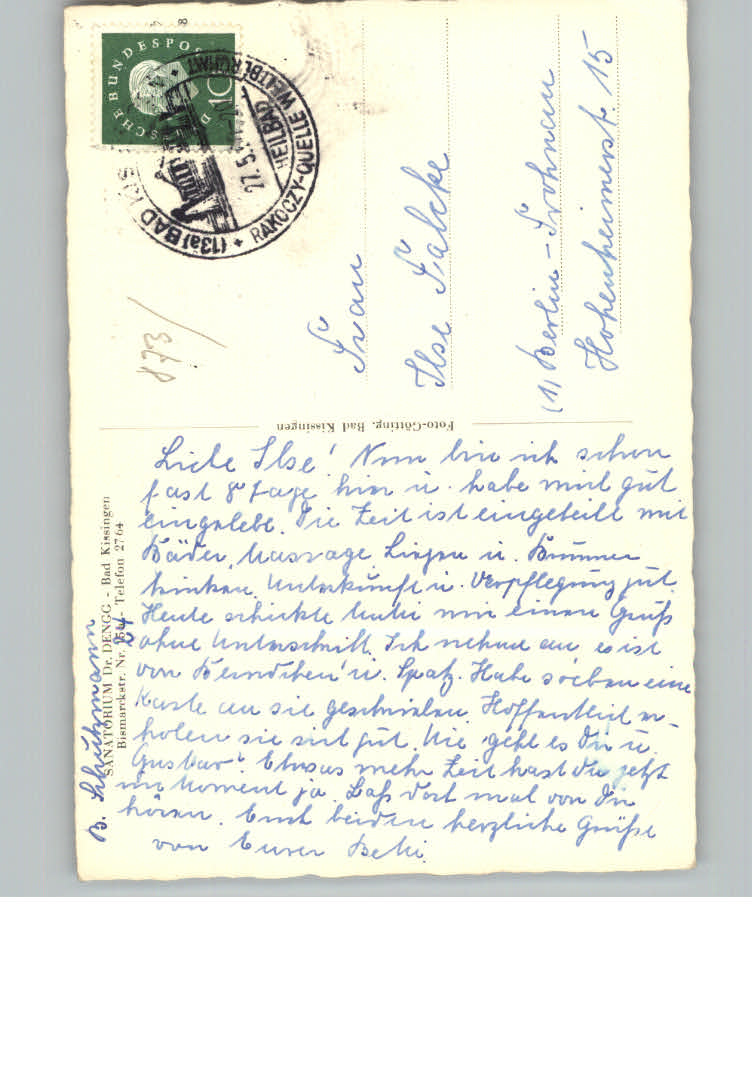 DEUTSCHE BUNDESPOST
10
(13a) BAD KIS
27.5.
HEILBAD
RAKOCZY-QUELLE WELTBERÜHMT
873/
Frau
Ilse Falcke
(1) Berlin - Frohnau
Hohenheimerst. 15
Foto-Götting, Bad Kissingen
SANATORIUM Dr. DENGG - Bad Kissingen
Bismarckstr. Nr. 24 - Telefon 2764
B. Schützmann
Liebe Ilse! Nun bin ich schon
fast 8 Tage hier u. habe mich gut
eingelebt. Die Zeit ist eingeteilt mit
Bäder, Massage Liegen u. Brunnen
trinken. Unterkunft u. Verpflegung gut.
Heute schickte Mutti mir einen Gruß
ohne Unterschrift. Ich nehme an es ist
von u. Spatz. Habe soeben eine
Karte an sie geschrieben. Hoffentlich er-
holen sie sich gut. Wie geht es Dir u.
Gustav? Etwas mehr Zeit hast du jetzt
im Moment ja. Laß doch mal von Dir
hören. Euch beiden herzliche Grüße
von Eurer